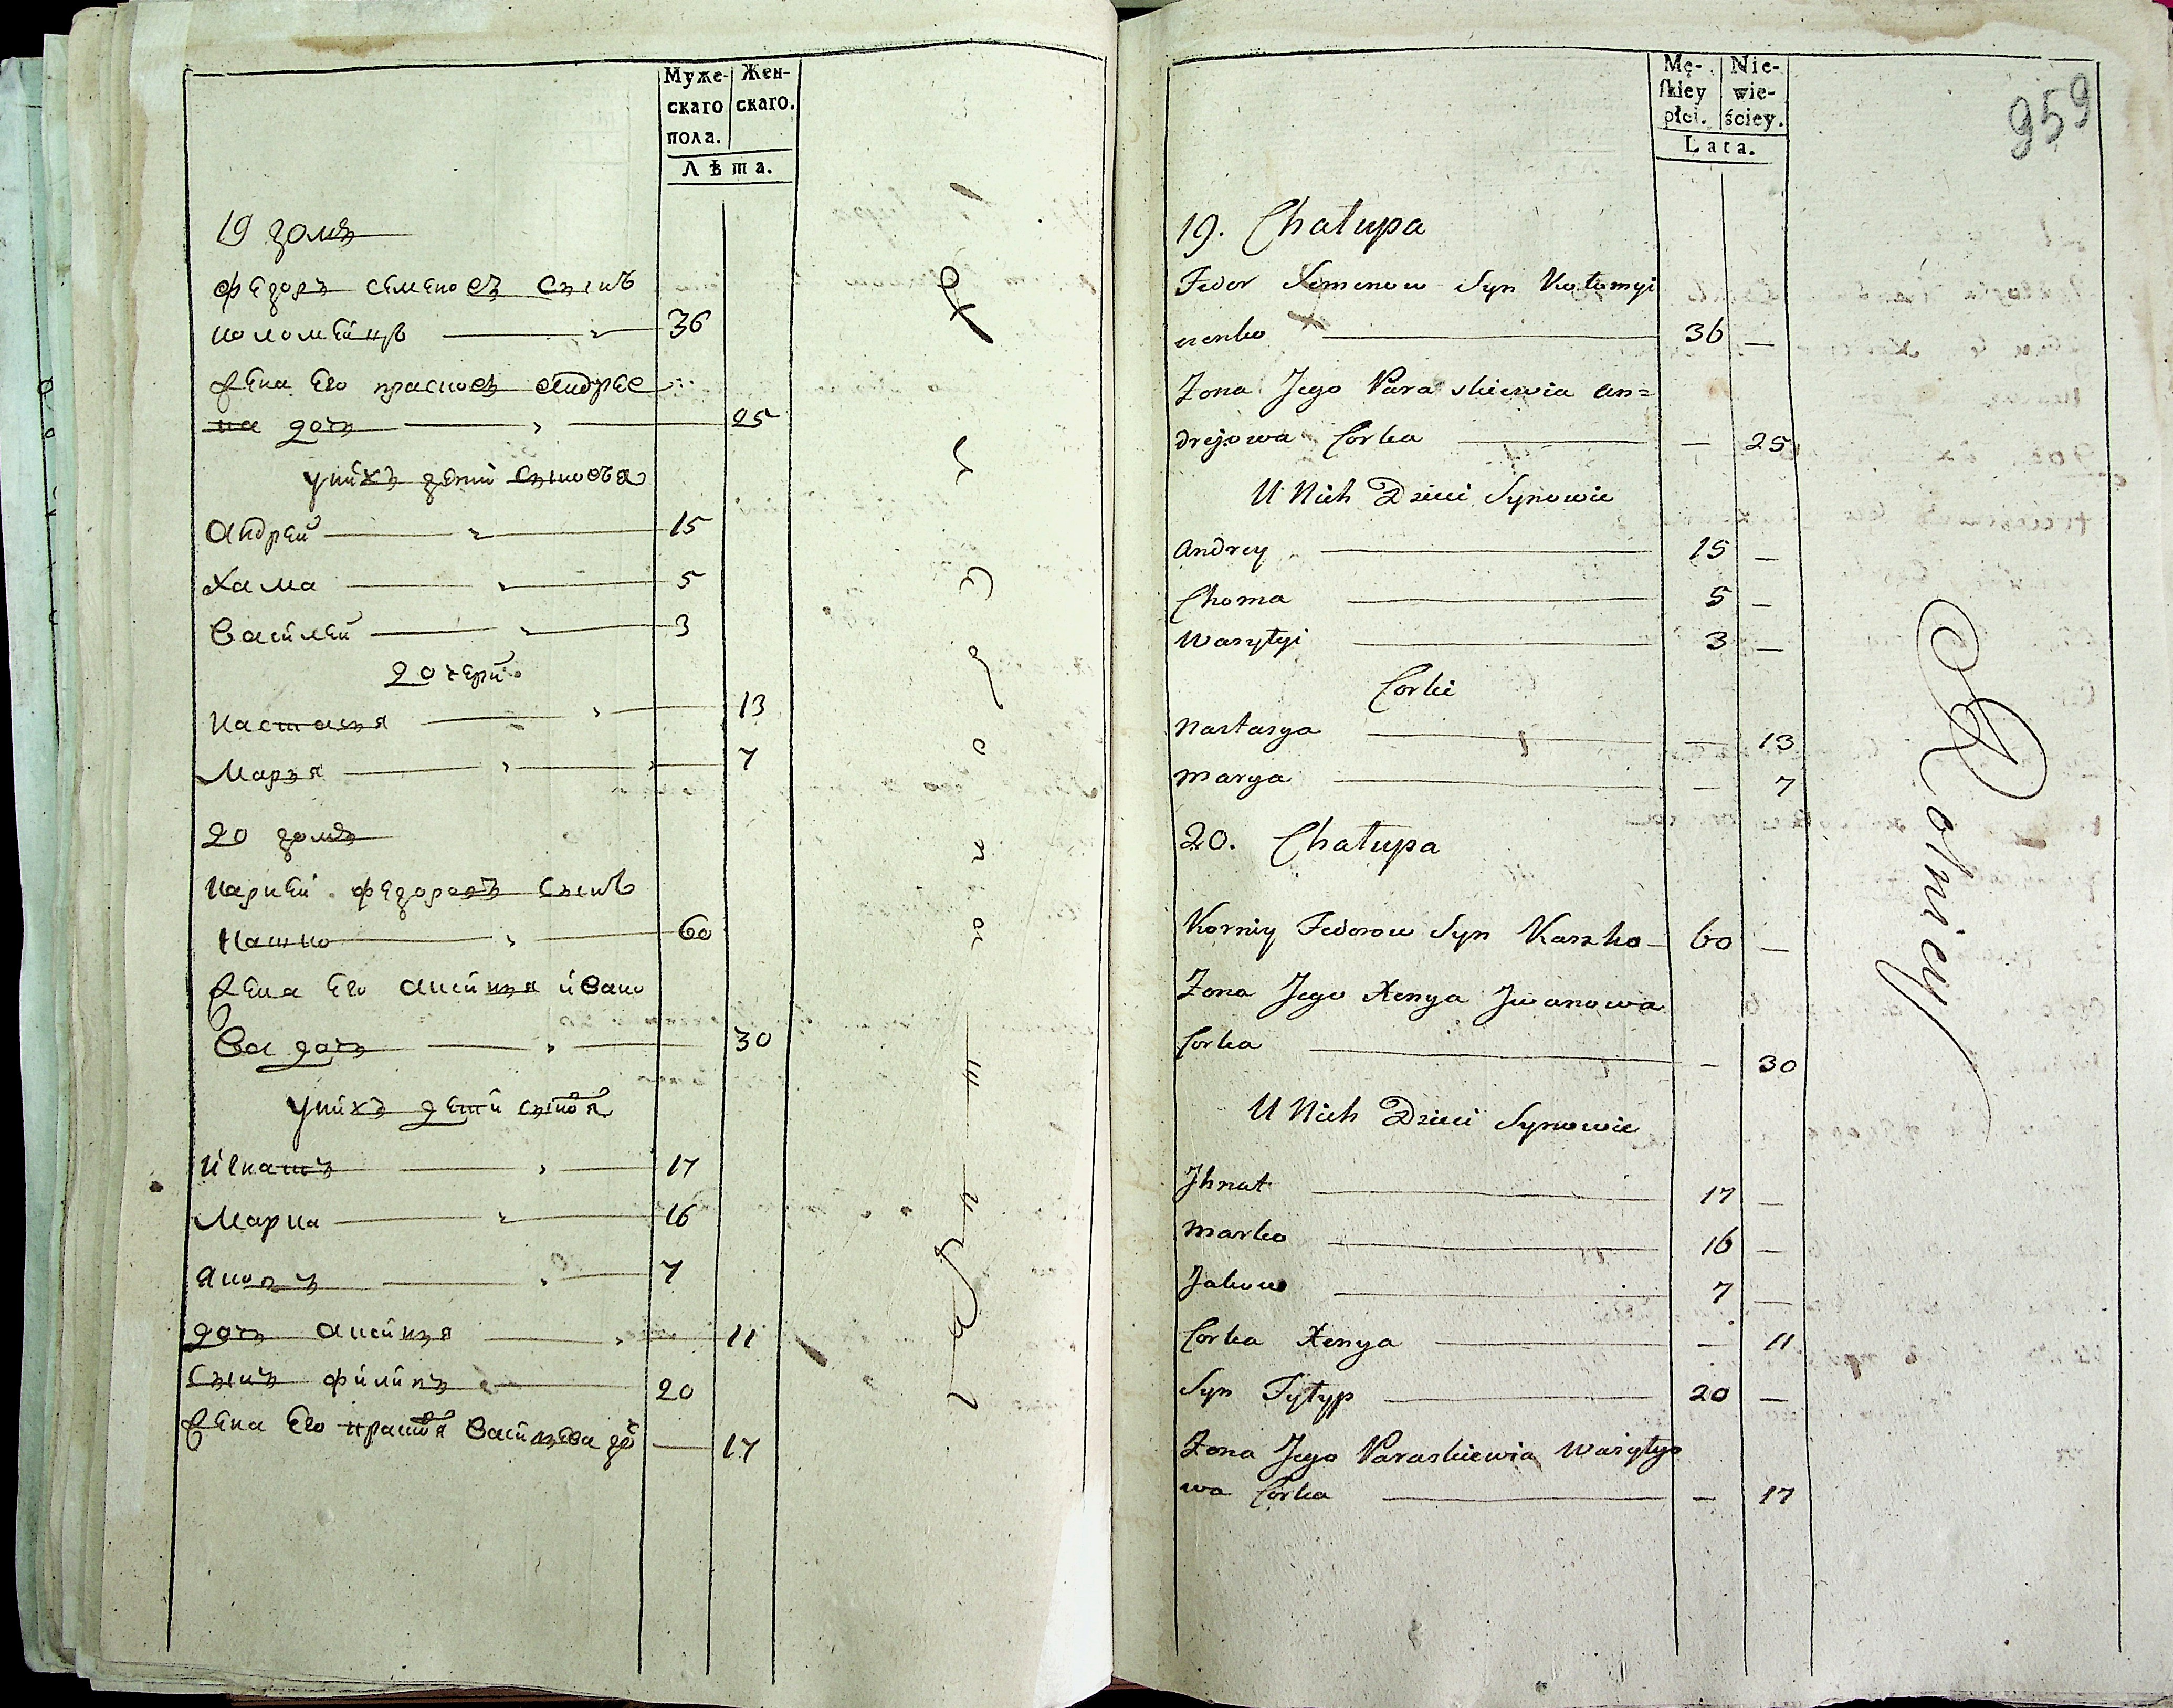 Муже-
скаго
пола.
Жен-
скаго.
Лѣта.
19 домъ
Федоръ Семеновъ Сынъ
Коломѣйцъ 36
Жена Его Прасковъ Андрее
на дочь 25
у нихъ дети Сыновья
Андрей 15
Хама 5
Василей 3
дочери
Настасья 13
Марья 7
20 домъ
Карней Федоровъ Сынъ
Кашко 60
Жена Его Аксинья ивано
ва дочь 30
у нихъ дети сыновя
Игнатъ 17
Марка 16
Яковъ 7
дочь Аксинья 11
Сынъ Филипъ 20
Жена Его Прасковя Васильева до 17
Mę-
skiey
płci.
Nie-
wie-
ściey.
Lata.
959
19. Chałupa
Fedor Semenow Syn Kołomyi
cenko 36 —
Żona Jego Paraskiewia An=
drejowa Corka — 25
U Nich Dzieci Synowie
Andrey 15 —
Choma 5 —
Wasyłyi 3 —
Corki
Nastasya — 13
Marya — 7
20. Chałupa
Korniy Fedorow Syn Kaszko 60 —
Żona Jego Xenya Jwanowa
Corka — 30
U Nich Dzieci Synowie
Jhnat 17 —
Marko 16 —
Jakow 7 —
Corka Xenya — 11
Syn Fyłyp 20 —
Żona Jego Paraskiewia Wasyłyo
wa Corka — 17
Rolnicy